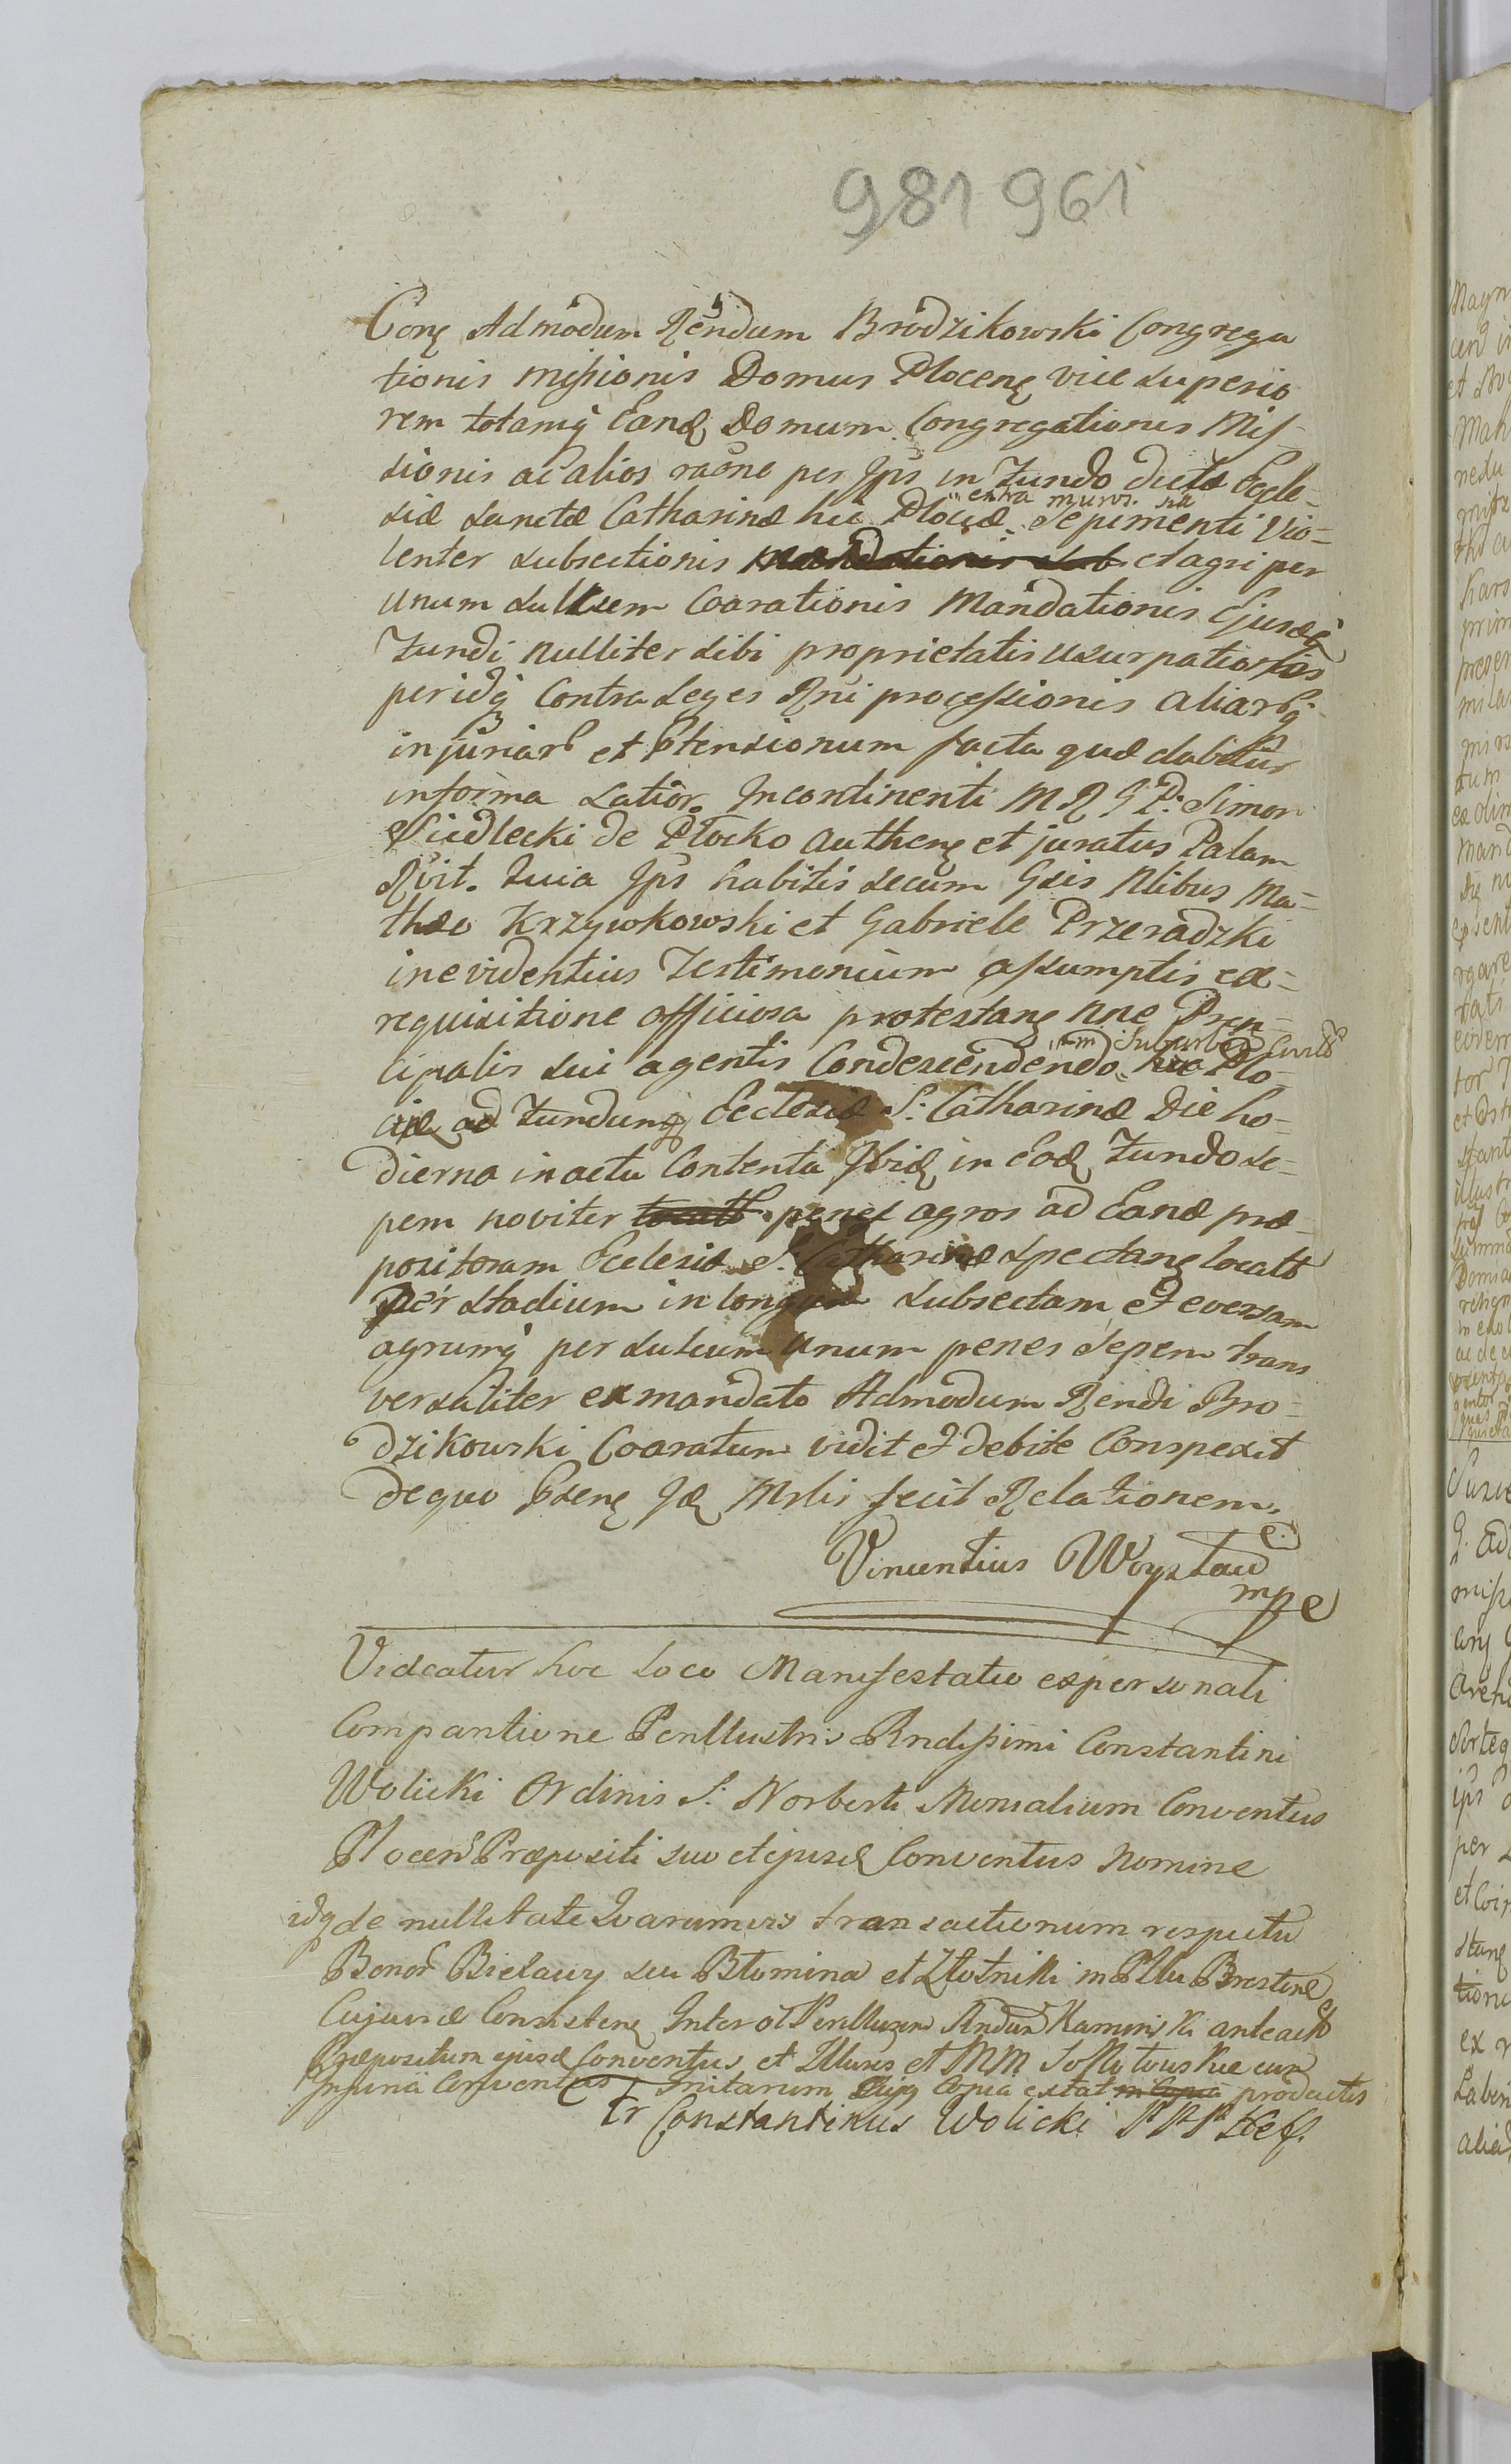 981 961
Conq Admodum Rendum Brodzikowski Congrega
tionis missionis Domus Plocenq vice superio
rem totamq Eand Domum Congregationis Mis-
sionis ac alios raone per Ips in Fundo dictæ Eccle-
siæ Sanctæ Catharinæ hic Plociæ extra muros sitæ Sepimenti Vio-
lenter subsectionis mandationis sub et agri per
unum sulcum Coarationis Mandationis Ejusdq
Fundi nulliter sibi proprietatis usurpationis
peridq Contra Leges Rni processionis aliarq
injuriar et Ptensionum facta quæ dabitur
informa latior. Incontinenti M R G D: Simon
Siedlecki de Plocko authenq et juratus Palam
Rvit. Quia Ips habitis secum Gsis Nlibus Ma-
thæo Krzywkowski et Gabriele Przeradzki
in evidentius Testimonium assumptis ex-
requisitione officiosa protestanq nne Prin-
cipalis sui agentis Condescendendo hic Plo-
ciæ ad Fundumq Ecclesiæ S: Catharinæ Die ho-
dierna in actu Contenta Ibid in Eod Fundo se-
pem noviter locatt penes agros ad Eand præ-
posituram Ecclesiæ S: Catharinæ spectanq locatt
per stadium in longum subsectam et eversam
agrumq per sulcum unum penes sepem trans
versaliter ex mandato Admodum Rendi Bro-
dzikowski Coaratum vidit et debite Conspexit
de quo Psenq Id Mrlis fecit Relationem.
Vincentius
mpe
Videatur hoc loco Manifestatio ex personali
Compantione Perillustris Rndissimi Constantini
Wolicki Ordinis S: Norberti Monialium Conventus
Plocen Præpositi suo et ejusd Conventus Nomine
idq de nullitate Quarumvis transactionum respectu
Bonor Bielawy seu Blumina et Złotniki in Pllu Brestenq
Cujusvis Consistenq Inter Perillustrem Rndum Kaminski anteact
Præpositum ejusd Conventus et Illures et MM
Injuria Conventus Initarum Cujq Copia extat in Copia productis
Fr Constantinus Wolicki PPP